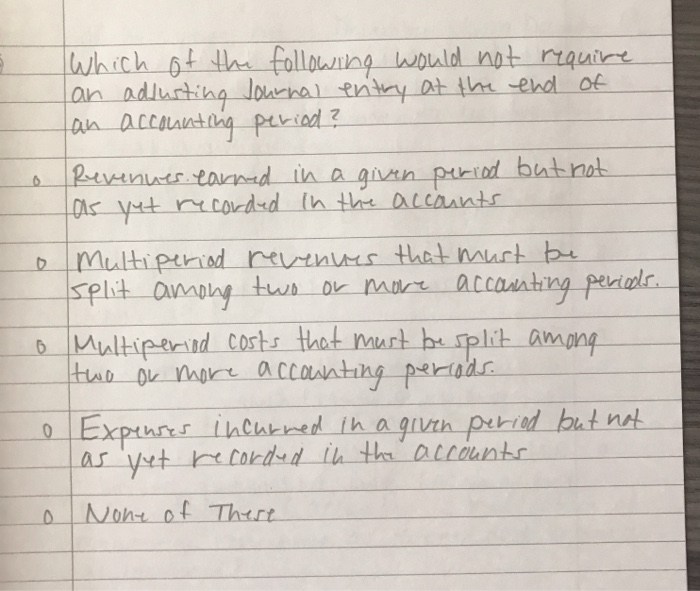 Which of the following would not require
an adjusting Journal entry at the end of
an accounting period?
o Revenues earned in a given period but not
as yet recorded in the accounts
o Multiperiod revenues that must be
split among two or more accounting periods.
o Multiperiod costs that must be split among
two or more accounting periods.
o Expenses incurred in a given period but not
as yet recorded in the accounts
o None of These